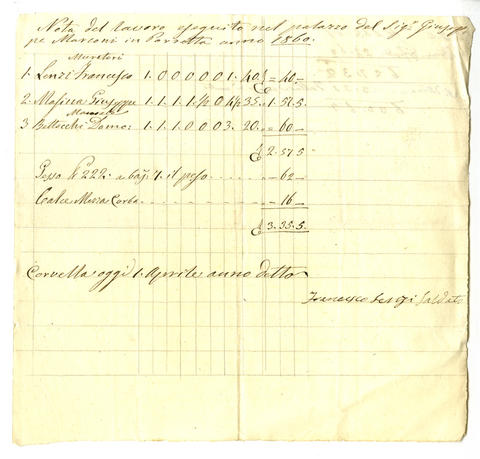 Nota del lavoro eseguito nel palazzo del Sigr. Giusep
pe Marconi in Porretta anno 1860.
Muratori
1. Lenzi Francesco 1. 0 0 0 0 0 1. 40 £ = 40 =
2. Masina Giuseppe 1. 1. 1. 1. ½ 0 4½ 35 = 1. 57. 5
3 Bettocchi Domco. 1. 1. 1. 0 0 0 3. 20. = 60 =
£ 2. 57. 5
Gesso 222. a baj. il peso = 62 =
Calce Mezza Corba = 16 =
£ 3. 35. 5.
oggi 1. Aprile anno detto
Francesco